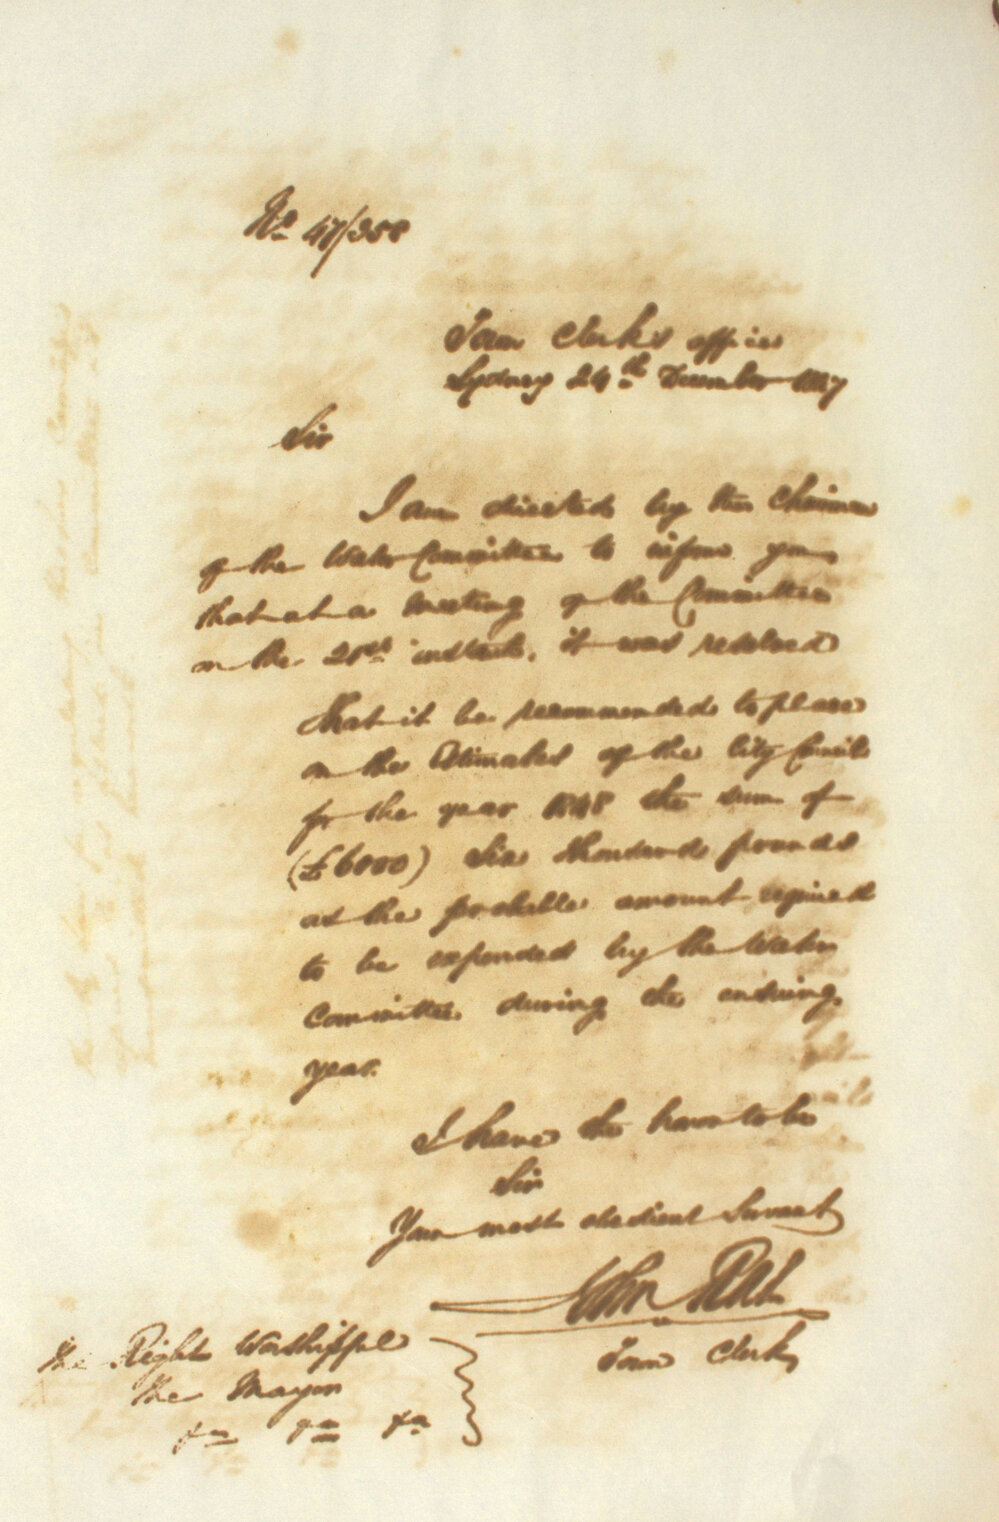 No 47/358
Town Clerk's office
Sydney 24th December 1847
Sir
I am directed by the Chairman
of the Water Committee to inform you
that at a meeting of the Committee
on the 21st instant, it was resolved
that it be recommended to place
on the Estimates of the City Council
for the year 1848 the sum of
(£6000) Six thousand pounds
as the probable amount required
to be expended by the Water
Committee during the ensuing
year.
I have the honor to be
Sir
Your most obedient Servant
John Rae
Town Clerk
The Right Worshipful
the Mayor
&c &c &c